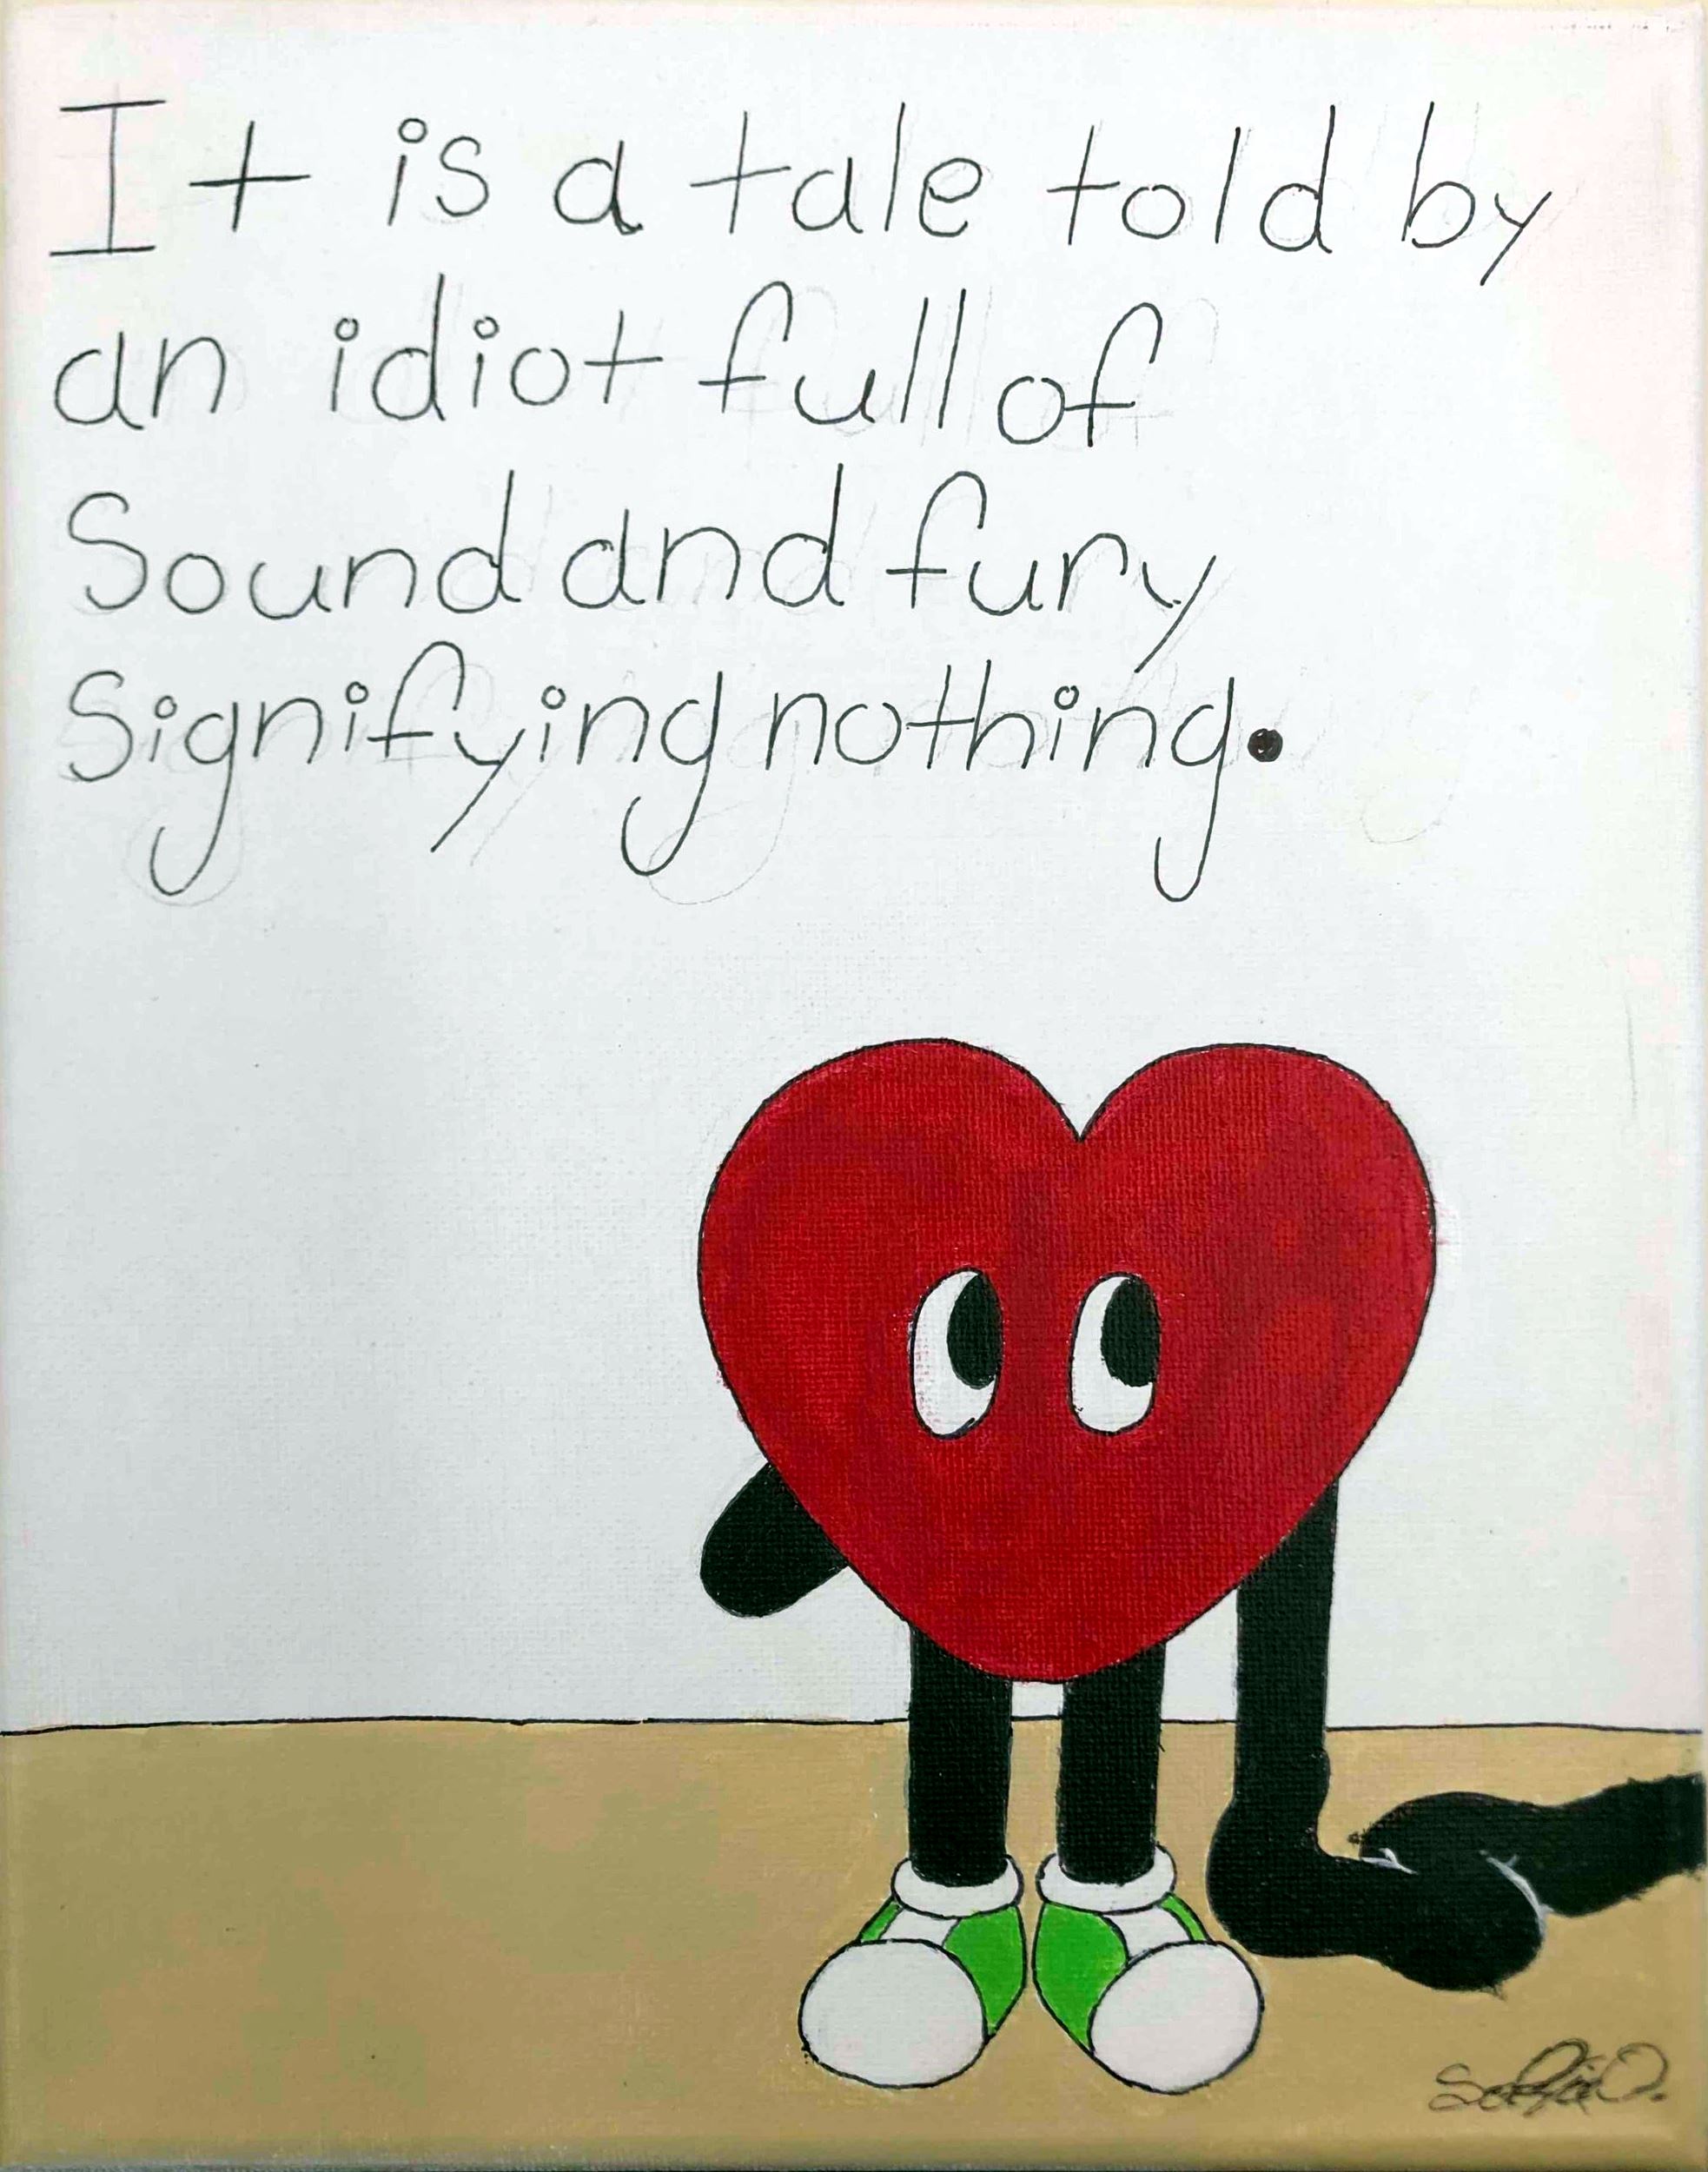 It is a tale told by
an idiot full of
Sound and fury
Signifying nothing.